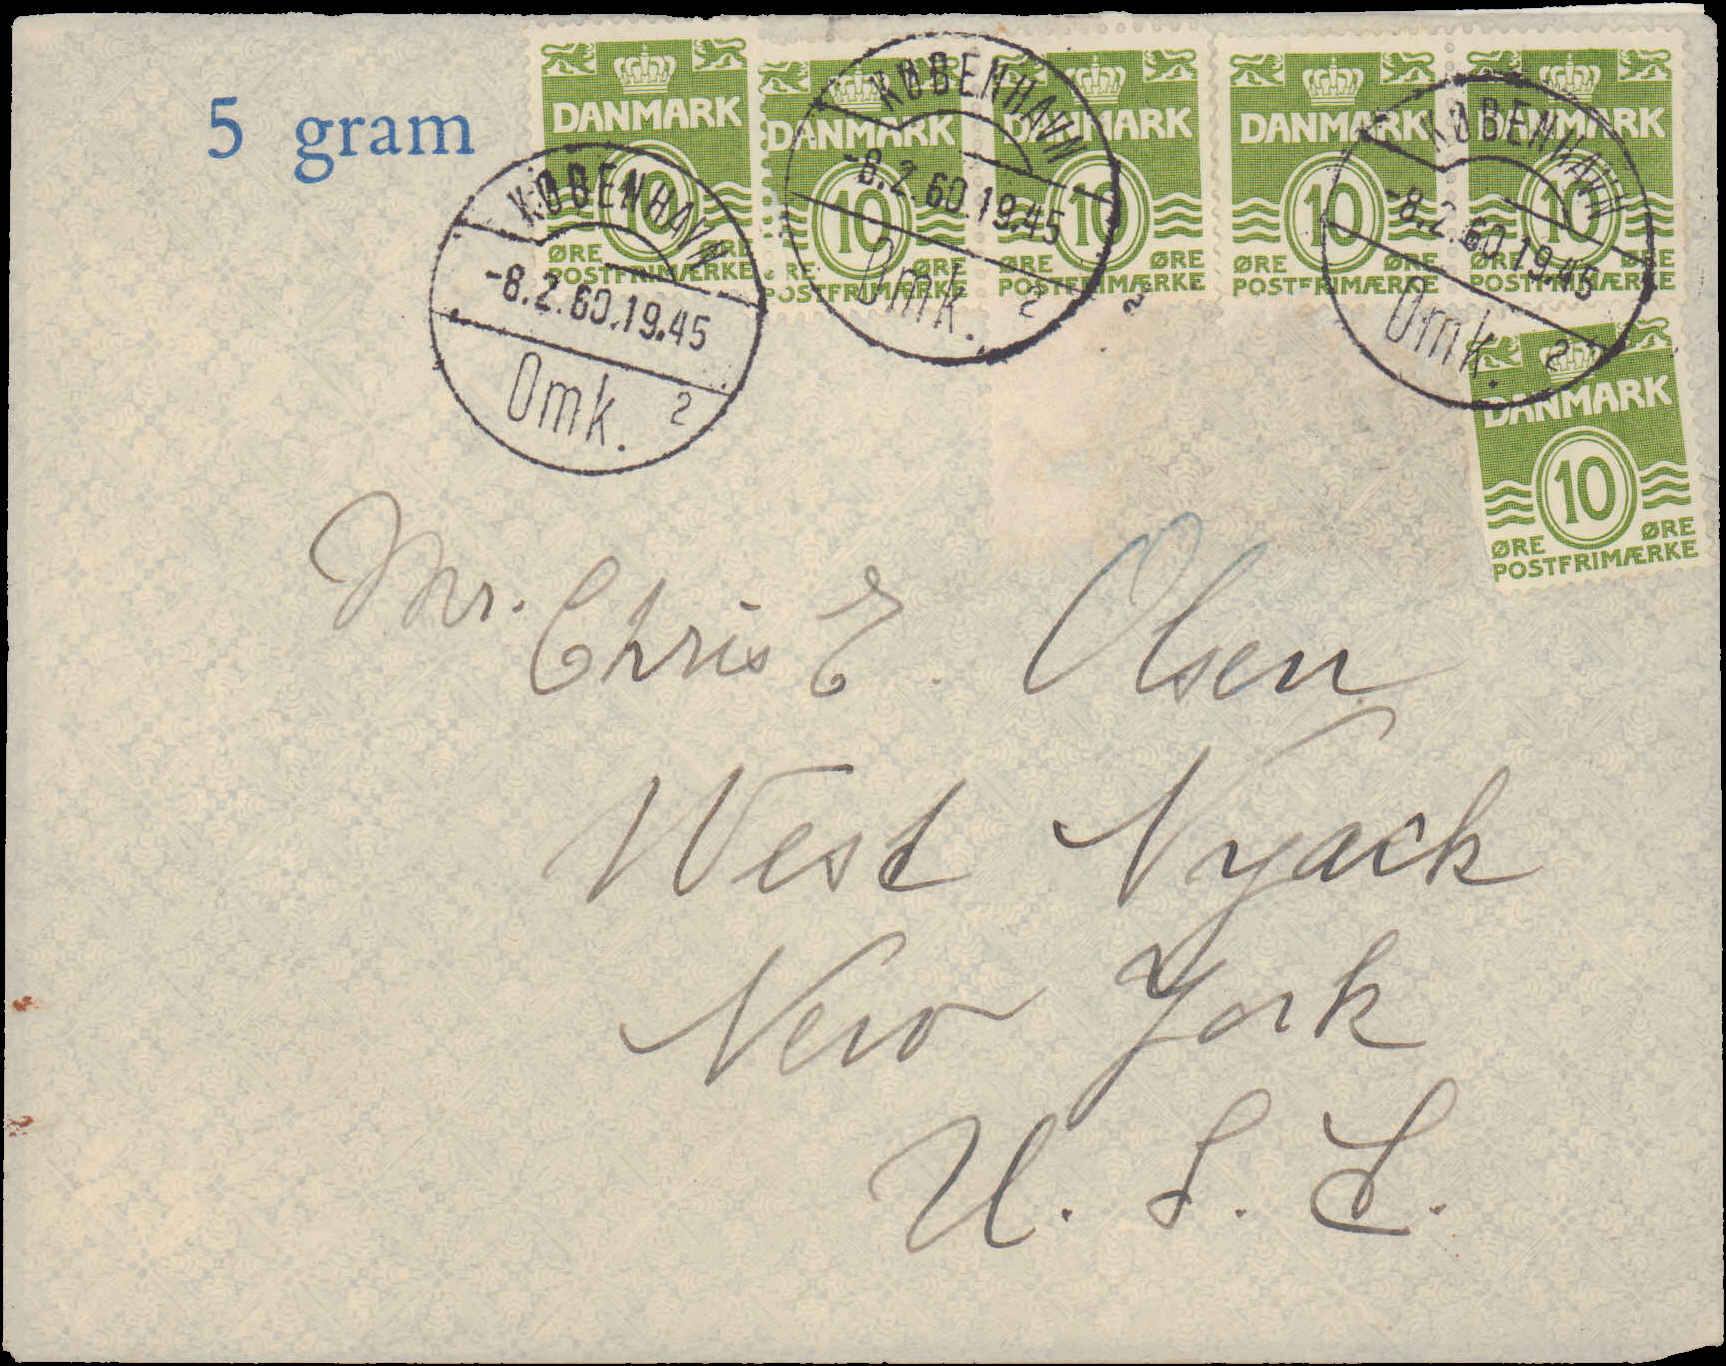 5 gram
DANMARK
10
ØRE ØRE
POSTFRIMÆRKE
DANMARK
10
RE ØRE
POSTFRIMÆRKE
DANMARK
10
ØRE ØRE
POSTFRIMÆRKE
DANMARK
10
ØRE ØRE
POSTFRIMÆRKE
DANMARK
10
ØRE ØRE
POSTFRIMÆRKE
DANMARK
10
ØRE ØRE
POSTFRIMÆRKE
KØBENHAVN
-8.2.60.19.45
Omk. 2
KØBENHAVN
-8.2.60.19.45
Omk. 2
KØBENHAVN
-8.2.60.19.45
Omk. 2
Mr. Chris E. Olsen
West Nyack
New York
U. S. A.